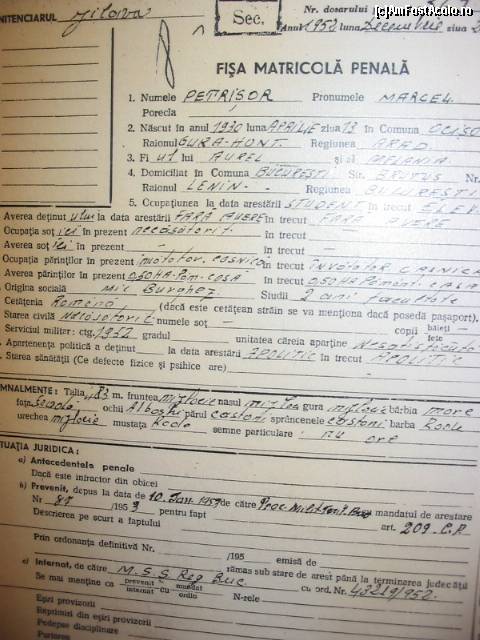 (c)AmFostAcolo.ro
Nr. dosarului
NITENCIARUL Jilava
Sec.
Anul 1952 luna Decembrie ziua 2
FIȘA MATRICOLĂ PENALĂ
1. Numele PETRIȘOR Pronumele MARCEL
Porecla
2. Născut în anul 1930 luna APRILIE ziua 13 în Comuna OCIȘO
Raionul GURA-HONT Regiunea ARAD
3. Fi ul lui AUREL și al MELANIA
4. Domiciliat în Comuna BUCUREȘTI Str. BRUTUS Nr.
Raionul LENIN - Regiunea BUCUREȘTI
5. Ocupațiunea la data arestării STUDENT în trecut ELEV
Averea deținut ului la data arestării FĂRĂ AVERE în trecut FĂRĂ AVERE
Ocupația soț iei în prezent necăsătorit în trecut
Averea soț iei în prezent - în trecut -
Ocupația părinților în prezent casnică în trecut ÎNVĂȚĂTOR CASNICĂ
Averea părinților în prezent CASĂ în trecut CASĂ
Origina socială Mic Burghez Studii 2 ani facultate
Cetățenia Română (dacă este cetățean străin se va menționa dacă posedă pașaport).
Starea civilă Necăsătorit numele soț - copii băieți - fete
Serviciul militar: ctg. 1952 gradul - unitatea căreia aparține Nesatisfăcut
Apartenența politică a deținut la data arestării APOLITIC în trecut APOLITIC
Starea sănătății (Ce defecte fizice și psihice are)
MNALMENTE: Talia 1,83 m. fruntea mijlocie nasul mijlociu gura mijlocie bărbia
fața ochii Albaștri părul castaniu sprâncenele castanii barba Rade
urechea mijlocie mustața Rade semne particulare: nu are
TUAȚIA JURIDICA:
a) Antecedentele penale
Dacă este infractor din obicei
b) Prevenit, depus la data de 10 Ian 1953 de către Proc. Militar mandatul de arestare
Nr. 88 /195 3 pentru fapt art. 209 C.P.
Descrierea pe scurt a faptului
Prin ordonanța definitivă Nr. /195 emisă de
rămas sub stare de arest până la terminarea judecății
c) Internat, de către M.S.S. Reg. Buc cu ord. Nr. 43219/952.
Se mai menține ca prevenit cu mandat
internat cu ordin N-rele
Eșiri provizorii
Reprimiri din eșiri provizorii
Pedepse disciplinare
Purtarea